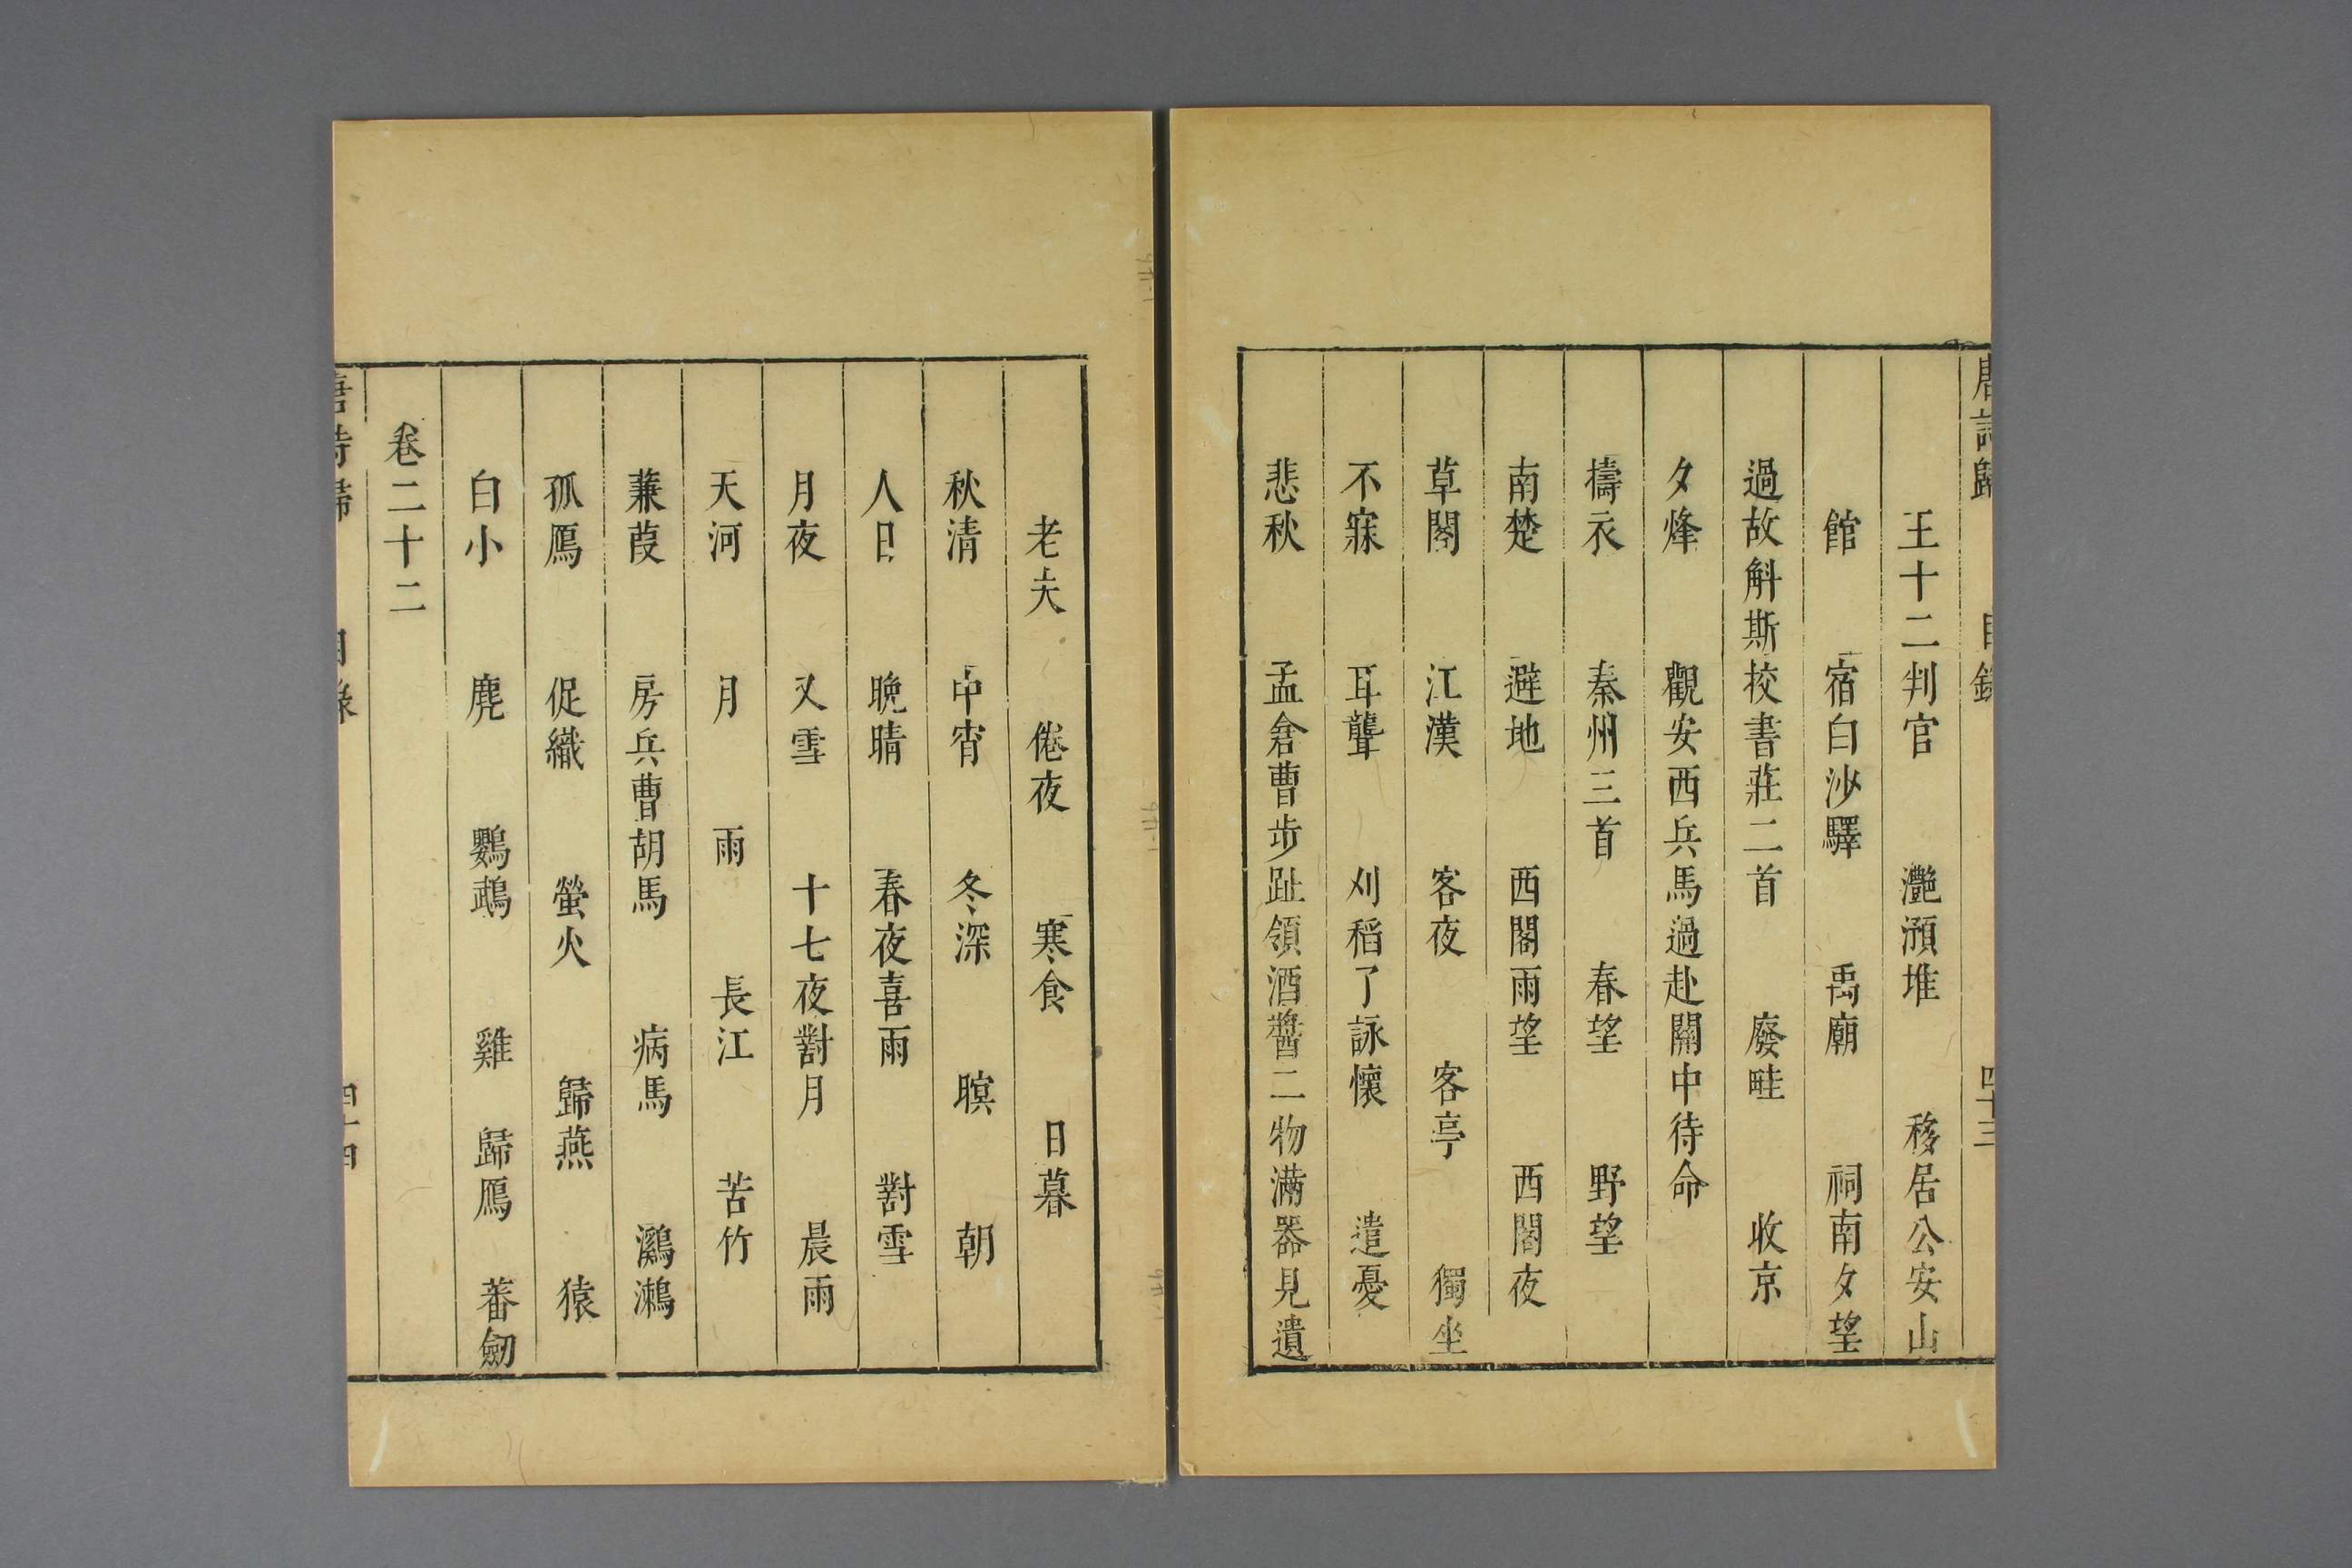 唐詩歸 目錄 四十三
王十二判官 灔澦堆 移居公安山
館 宿白沙驛 禹廟 祠南夕望
過故斛斯挍書莊二首 廢畦 收京
夕烽 觀安西兵馬過赴關中待命
擣衣 秦州三首 春望 野望
南楚 避地 西閣雨望 西閣夜
草閣 江漢 客夜 客亭 獨坐
不寐 耳聾 刈稻了詠懷 遣憂
悲秋 孟倉曹步趾領酒醬二物滿器見遺
老夫 倦夜 寒食 日暮
秋清 中宵 冬深 暝 朝
人日 晚晴 春夜喜雨 對雪
月夜 又雪 十七夜對月 晨雨
天河 月 雨 長江 苦竹
蒹葭 房兵曹胡馬 病馬 鸂鶒
孤鴈 促織 螢火 歸燕 猿
白小 麂 鸚鵡 雞 歸鴈 蕃劒
卷二十二
唐詩歸 目錄 四十四